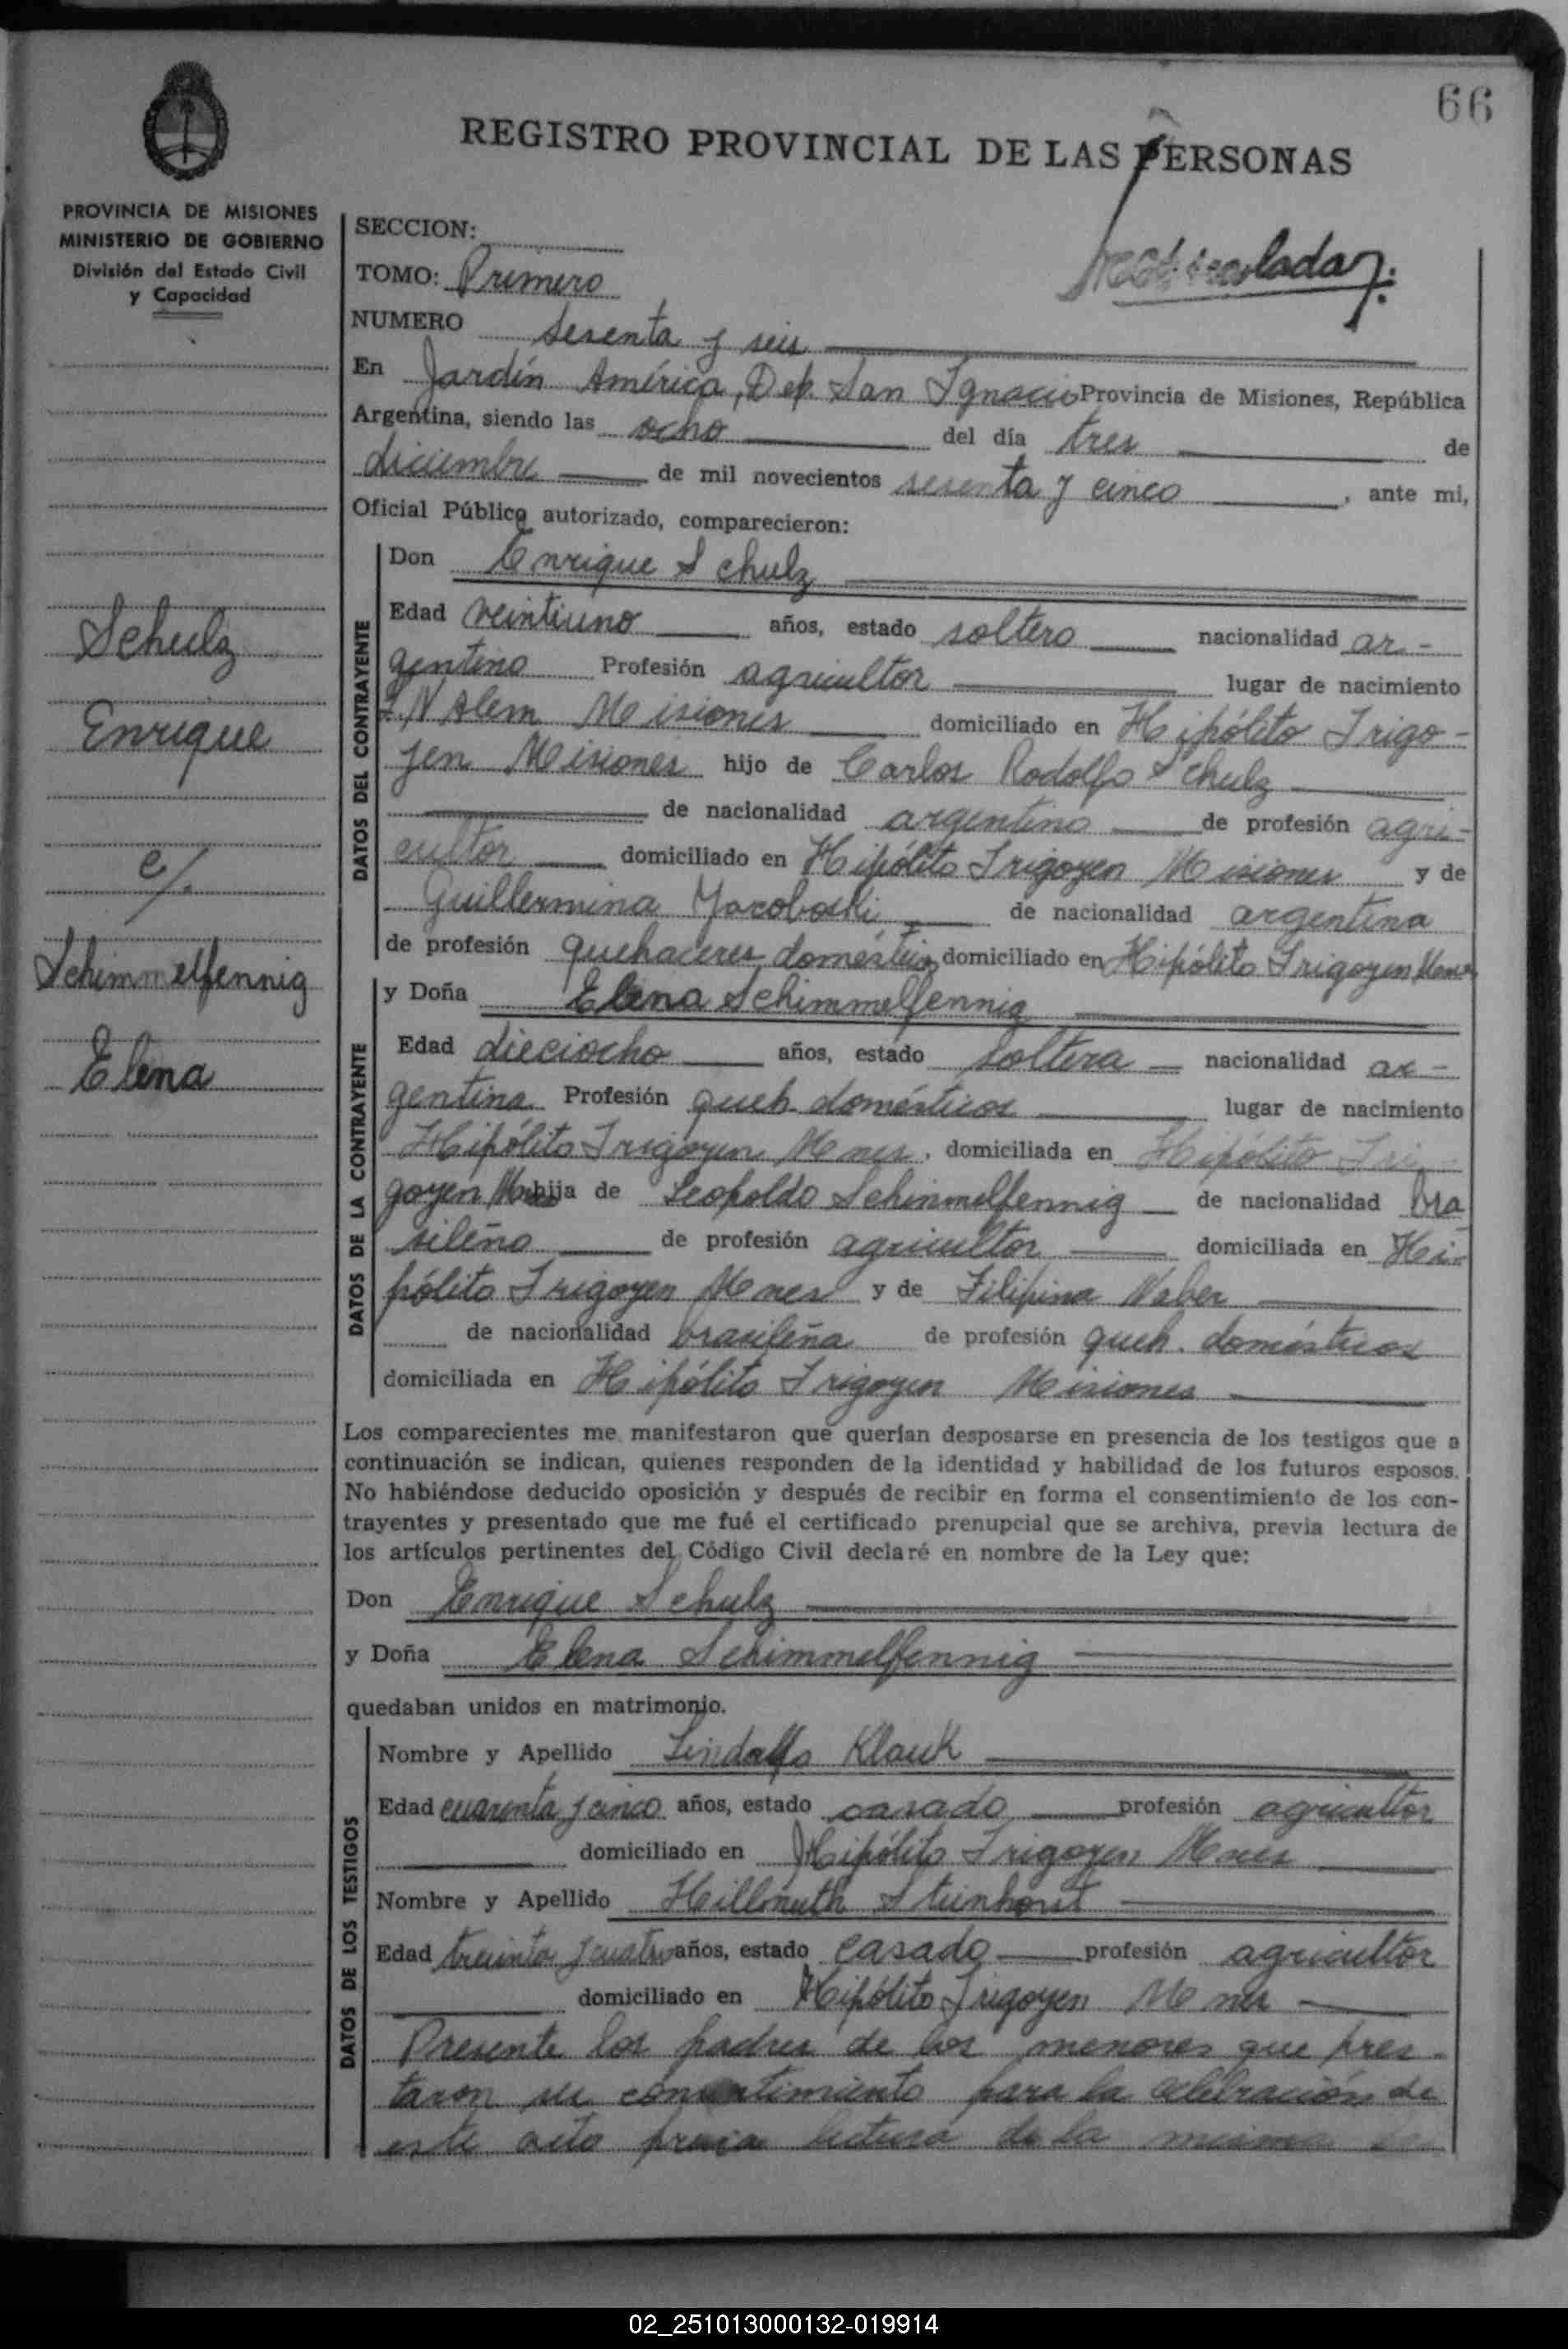 66
REGISTRO PROVINCIAL DE LAS PERSONAS
PROVINCIA DE MISIONES
MINISTERIO DE GOBIERNO
División del Estado Civil
y Capacidad
Schulz
Enrique
c/.
Schimmelfennig
Elena
SECCION:
TOMO: Primero
NUMERO sesenta y seis
En Jardín América, Dep. San Ignacio Provincia de Misiones, República
Argentina, siendo las ocho del día tres de
diciembre de mil novecientos sesenta y cinco, ante mi,
Oficial Público autorizado, comparecieron:
DATOS DEL CONTRAYENTE
Don Enrique Schulz
Edad veintiuno años, estado soltero nacionalidad ar-
gentino Profesión agricultor lugar de nacimiento
L. N Alem Misiones domiciliado en Hipólito Irigo-
yen Misiones hijo de Carlos Rodolfo Schulz
de nacionalidad argentino de profesión agri-
cultor domiciliado en Hipólito Irigoyen Misiones y de
Guillermina de nacionalidad argentina
de profesión quehaceres domésticos domiciliado en Hipólito Irigoyen Mones
DATOS DE LA CONTRAYENTE
y Doña Elena Schimmelfennig
Edad dieciocho años, estado soltera nacionalidad ar-
gentina Profesión queh. domésticos lugar de nacimiento
Hipólito Irigoyen Mones, domiciliada en Hipólito Iri-
goyen hija de Leopoldo Schimmelfennig de nacionalidad bra
sileño de profesión agricultor domiciliada en Hi-
pólito Irigoyen Mones y de Filipina Naber
de nacionalidad brasileña de profesión queh. domésticos
domiciliada en Hipólito Irigoyen Misiones
Los comparecientes me manifestaron que querían desposarse en presencia de los testigos que a
continuación se indican, quienes responden de la identidad y habilidad de los futuros esposos.
No habiéndose deducido oposición y después de recibir en forma el consentimiento de los con-
trayentes y presentado que me fué el certificado prenupcial que se archiva, previa lectura de
los artículos pertinentes del Código Civil declaré en nombre de la Ley que:
Don Enrique Schulz
y Doña Elena Schimmelfennig
quedaban unidos en matrimonio.
DATOS DE LOS TESTIGOS
Nombre y Apellido Lindolfo Klauk
Edad cuarenta y cinco años, estado casado profesión agricultor
domiciliado en Hipólito Irigoyen Mones
Nombre y Apellido Hillmuth Steinhorst
Edad treinta y cuatro años, estado casado profesión agricultor
domiciliado en Hipólito Irigoyen Mones
Presente los padres de los menores que pres-
taron su consentimiento para la celebración de
este acto previa lectura de la misma
02_251013000132-019914